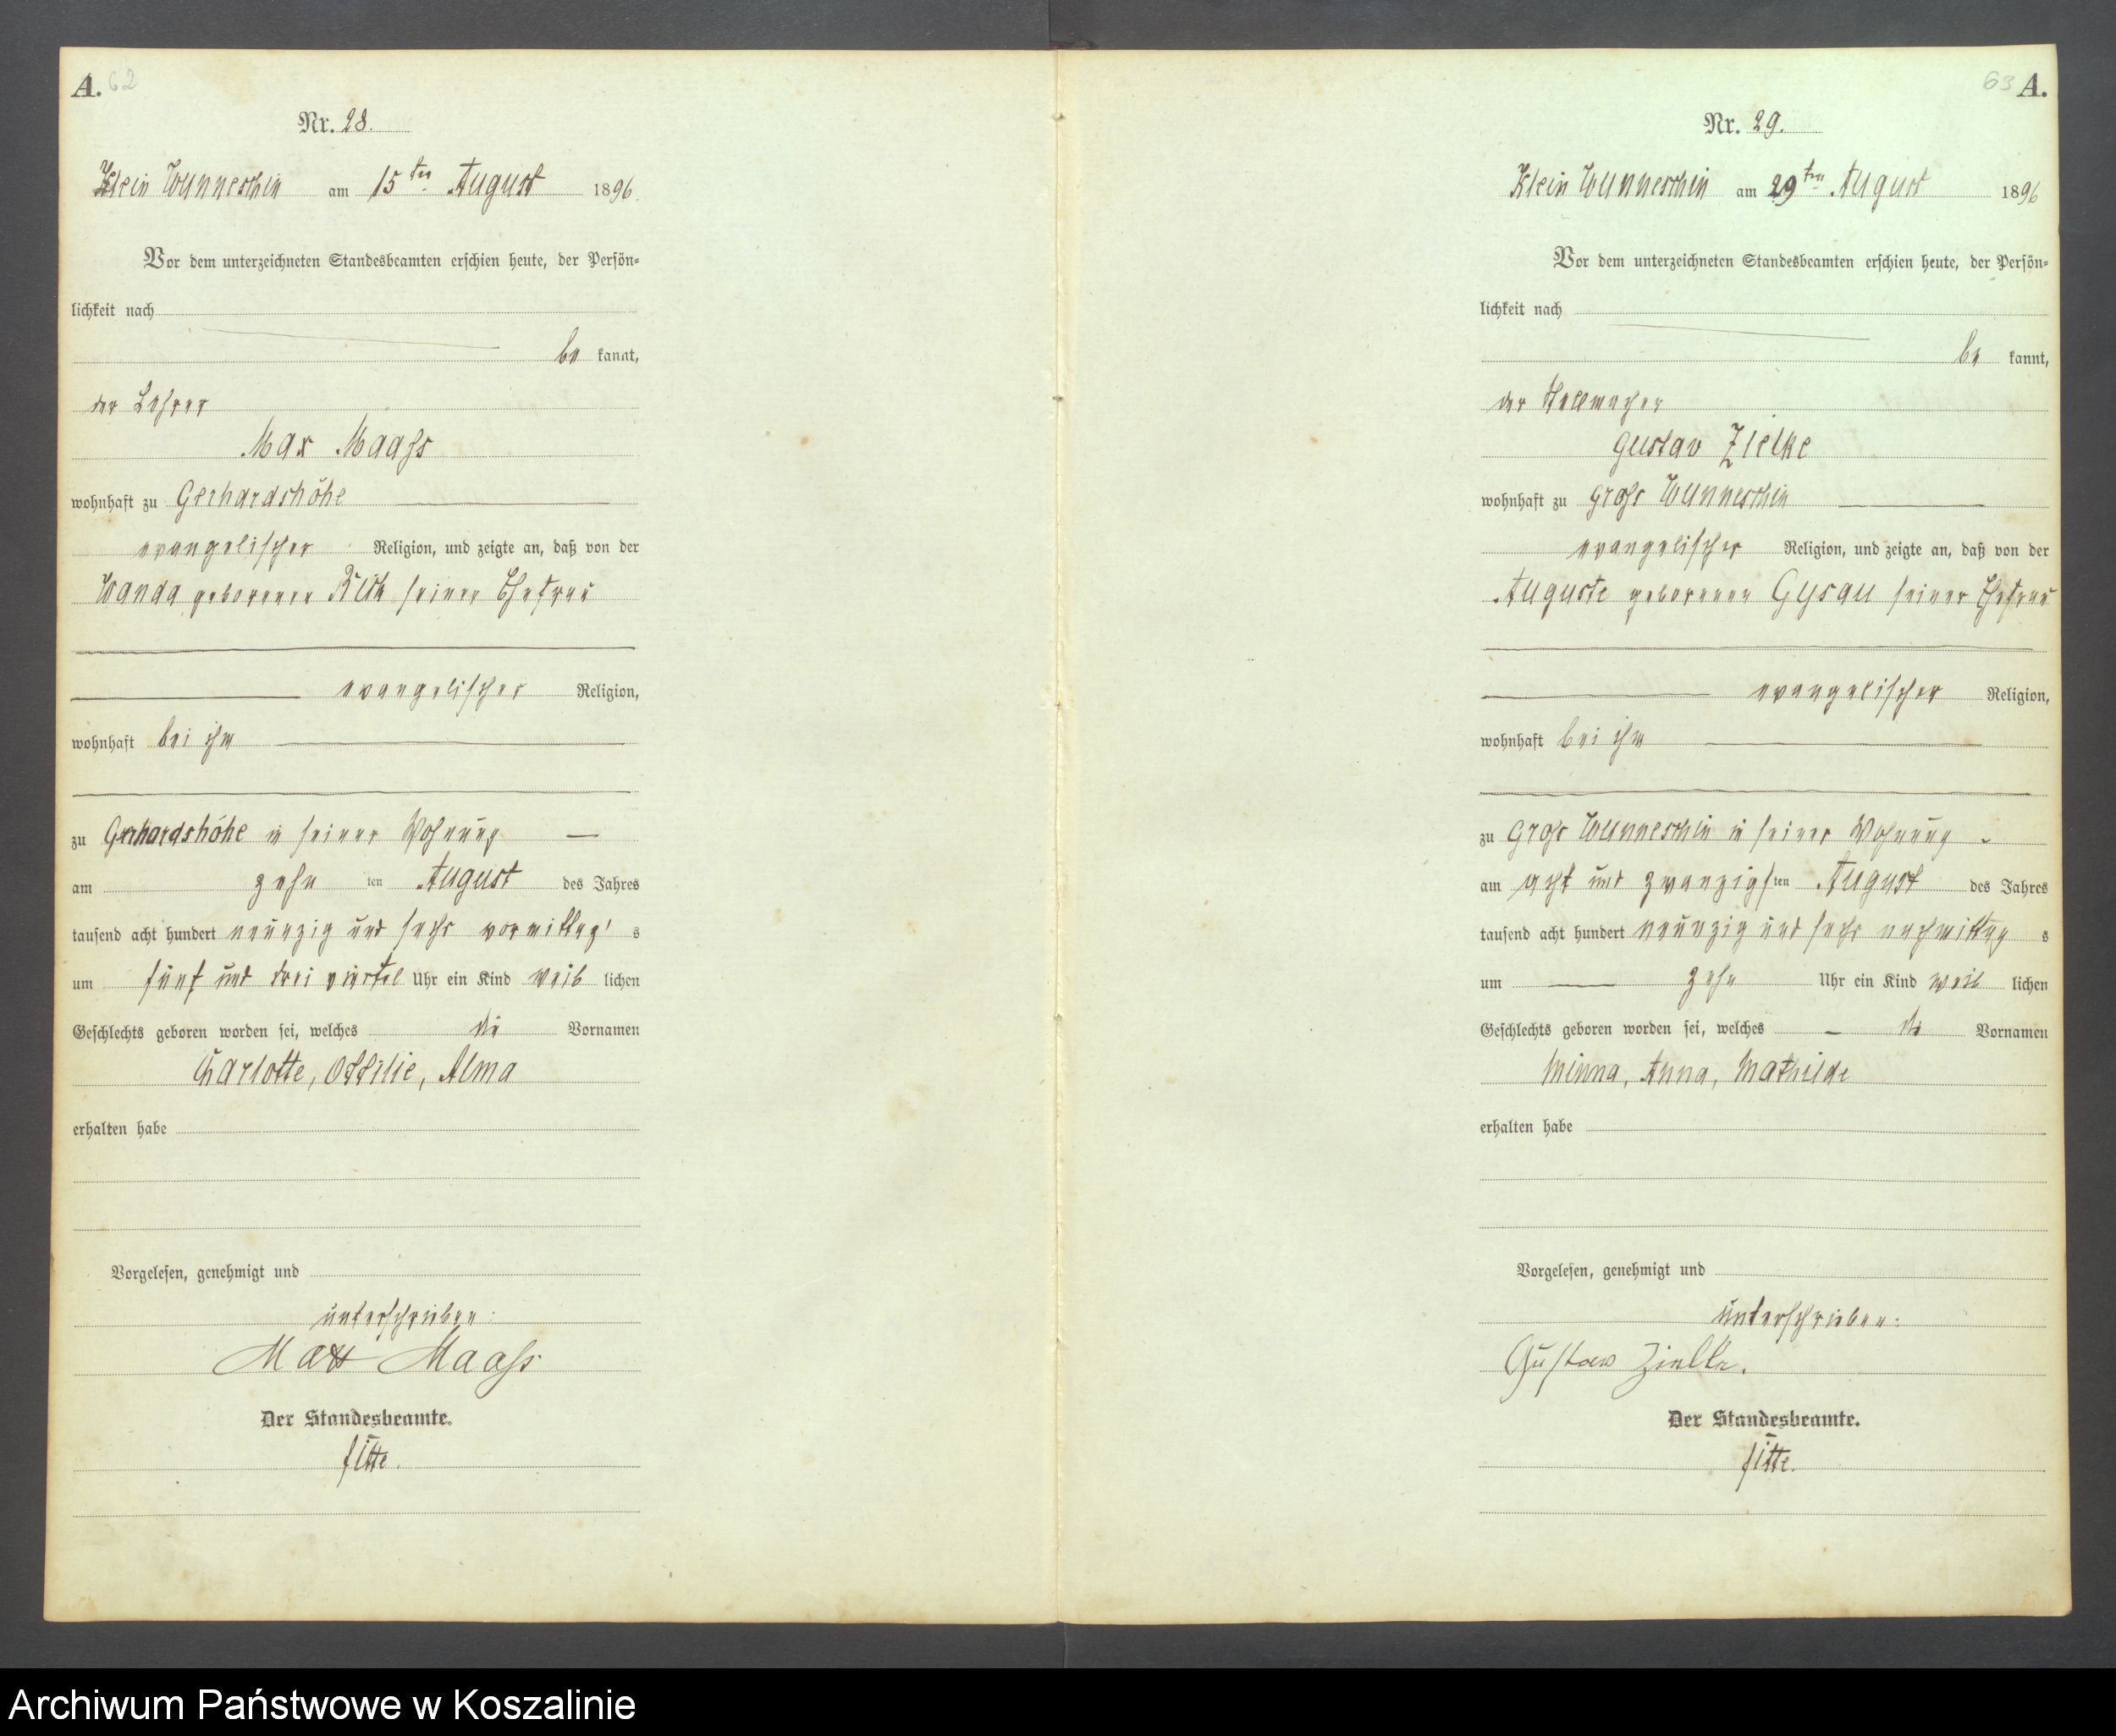 A. 62
Nr. 28.
Klein Wunneschin am 15ten August 1896.
Vor dem unterzeichneten Standesbeamten erschien heute, der Persön-
lichkeit nach
be kannt,
der Lehrer
Max Maaß
wohnhaft zu Gerhardshöhe
evangelischer Religion, und zeigte an, daß von der
Wanda geborenen seiner Ehefrau
evangelischer Religion,
wohnhaft bei ihm
zu Gerhardshöhe in seiner Wohnung
am zehn ten August des Jahres
tausend acht hundert neunzig und sechs vormittag s
um fünf und drei viertel Uhr ein Kind weib lichen
Geschlechts geboren worden sei, welches die Vornamen
Charlotte, Ottilie, Alma
erhalten habe
Vorgelesen, genehmigt und
unterschrieben:
Max Maaß
Der Standesbeamte.
Fitte.
63 A.
Nr. 29.
Klein Wunneschin am 29ten August 1896
Vor dem unterzeichneten Standesbeamten erschien heute, der Persön-
lichkeit nach
be kannt,
der Stellmacher
Gustav Zielke
wohnhaft zu Groß Wunneschin
evangelischer Religion, und zeigte an, daß von der
Auguste geborenen Gysau seiner Ehefrau
evangelischer Religion,
wohnhaft bei ihm
zu Groß Wunneschin in seiner Wohnung
am acht und zwanzigsten August des Jahres
tausend acht hundert neunzig und sechs nachmittag s
um zehn Uhr ein Kind weib lichen
Geschlechts geboren worden sei, welches die Vornamen
Minna, Anna, Mathilde
erhalten habe
Vorgelesen, genehmigt und
unterschrieben:
Gustav Zielke.
Der Standesbeamte.
Fitte.
Archiwum Państwowe w Koszalinie